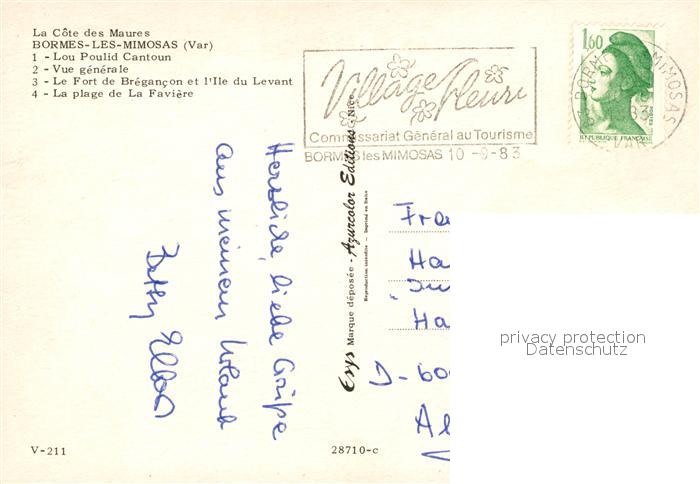 La Côte des Maures
BORMES-LES-MIMOSAS (Var)
1 - Lou Poulid Cantoun
2 - Vue générale
3 - Le Fort de Brégançon et l'Ile du Levant
4 - La plage de La Favière
Village Fleuri
Commissariat Général au Tourisme
BORMES les MIMOSAS 10 -9-83
1,60
REPUBLIQUE FRANÇAISE
BORM MIMOSAS
83
VAR
Herzliche, liebe Grüße
aus meinem Urlaub
Betty
Esys Marque déposée - Azurcolor Editions - Nice
Reproduction interdite - Imprimé en Italie
Fra
Ha
Ha
D-60
Al
privacy protection
Datenschutz
V-211
28710-c